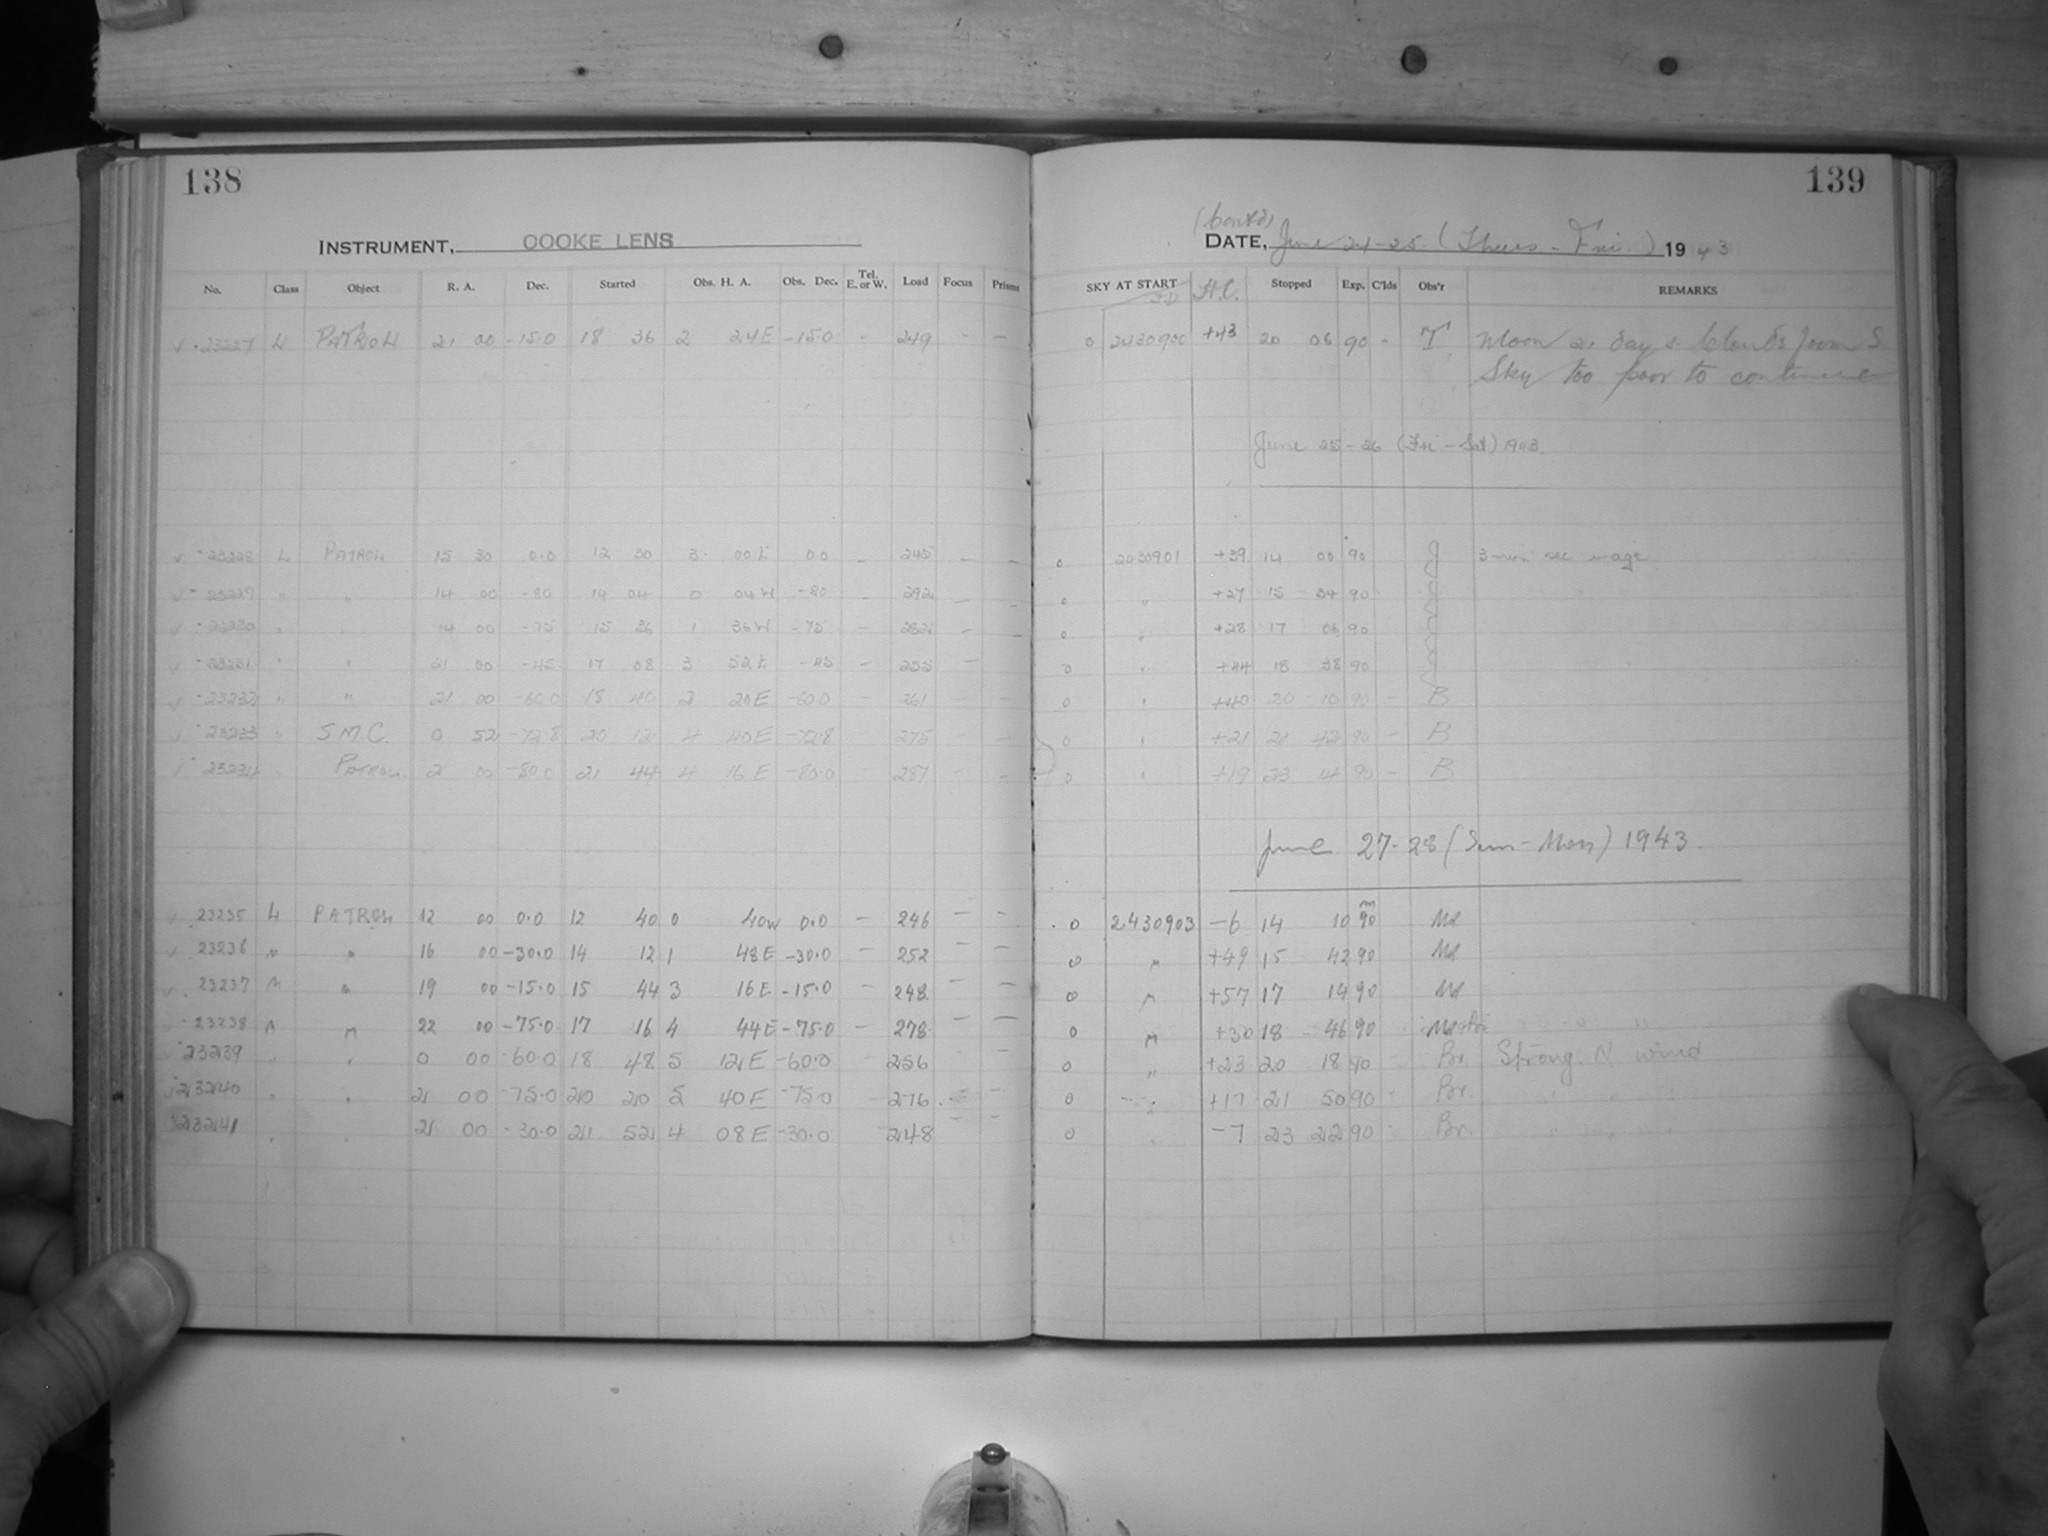 138
139
INSTRUMENT, COOKE LENS
(Contd)
DATE, June 24-25 (Thurs - Fri.) 1943
No. Class Object R. A. Dec. Started Obs. H. A. Obs. Dec. Tel. E. or W. Load Focus Prisms SKY AT START JD H.C. Stopped Exp. C'lds Obs'r REMARKS
v 23227 L PATROL 21 00 -15.0 18 36 2 24E -15.0 - 249 - - 0 2430900 +43 20 06 90 - T. Moon 21 days. Clouds from S
Sky too poor to continue
June 25-26 (Fri - Sat) 1943.
v 23228 L PATROL 15 30 0.0 12 30 3 00E 0.0 - 245 - - 0 2430901 +39 14 00 90 J 3 min. sec image
v 23229 " " 14 00 -80 14 04 0 04W -80 - 292 - - 0 " +27 15 34 90 J
v 23230 " " 14 00 -75 15 36 1 36W -75 - 282 - - 0 " +28 17 06 90 J
v 23231 " " 21 00 -45 17 08 3 52E -45 - 255 - 0 " +44 18 38 90 J
v 23232 " " 21 00 -60.0 18 40 2 20E -60.0 - 261 - - 0 " +40 20 10 90 - B
v 23233 " S.M.C. 0 52 -72.8 20 12 4 40E -72.8 - 275 - - 0 " +21 21 42 90 - B
v 23234 " PATROL 2 00 -80.0 21 44 4 16E -80.0 - 287 - - 0 " +19 23 14 90 - B
June 27-28 (Sun-Mon) 1943.
v 23235 L PATROL 12 00 0.0 12 40 0 40W 0.0 - 246 - - 0 2430903 -6 14 10 90m Ma
v 23236 " " 16 00 -30.0 14 12 1 48E -30.0 - 252 - - 0 " +49 15 42 90 Ma
v 23237 " " 19 00 -15.0 15 44 3 16E -15.0 - 248 - - 0 " +57 17 14 90 Ma
v 23238 " " 22 00 -75.0 17 16 4 44E -75.0 - 278 - - 0 " +30 18 46 90 " "
v 23239 " " 0 00 -60.0 18 48 5 12E -60.0 256 - - 0 " +23 20 18 90 Br. Strong N. wind
v 23240 " " 2 00 -75.0 20 20 5 40E -75.0 276 - - 0 " +17 21 50 90 Br. " " "
23241 " " 2 00 -30.0 21 52 4 08E -30.0 248 - - 0 " -7 23 22 90 Br. " " "